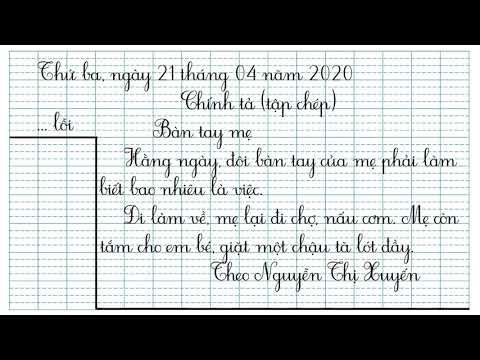 Thứ ba, ngày 21 tháng 04 năm 2020
Chính tả (tập chép)
... lỗi
Bàn tay mẹ
Hằng ngày, đôi bàn tay của mẹ phải làm
biết bao nhiêu là việc.
Đi làm về, mẹ lại đi chợ, nấu cơm. Mẹ còn
tắm cho em bé, giặt một chậu tã lót đầy.
Theo Nguyễn Thị Xuyến